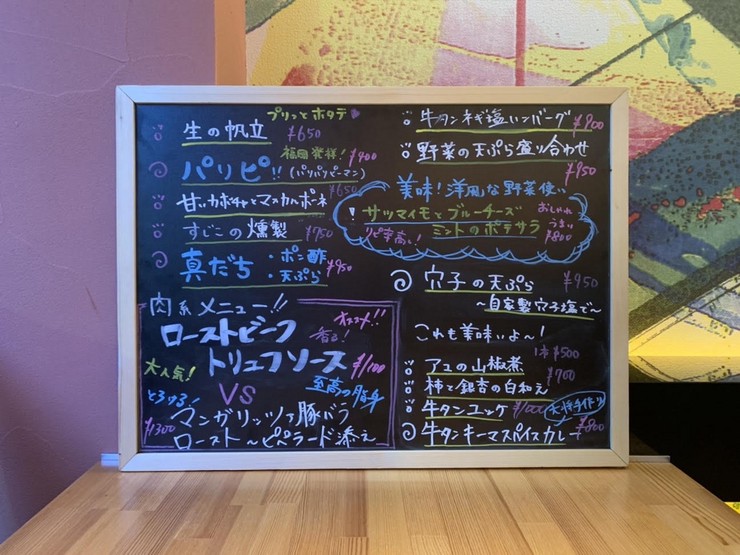 プリっとホタテ
生の帆立 ¥650
福岡発祥! ¥400
パリピ!! (パリパリピーマン)
甘いカボチャとマスカルポーネ ¥650
すじこの燻製 ¥750
真だち ・ポン酢
・天ぷら ¥950
肉系メニュー!!
オススメ!!
ローストビーフ 香る!
トリュフソース ¥1100
大人気! VS 至高の脂身
とろける!
マンガリッツァ豚バラ
¥1300 ロースト〜ピペラード添え
牛タンネギ塩ハンバーグ ¥900
野菜の天ぷら盛り合わせ
¥950
美味!洋風な野菜使い
! サツマイモとブルーチーズ おしゃれ
リピ率高し! ミントのポテサラ うまい ¥800
穴子の天ぷら ¥950
〜自家製穴子塩で〜
これも美味いよ〜!
1本¥500
アユの山椒煮
柿と銀杏の白和え ¥700
牛タンユッケ ¥1000 大将手作り
牛タンキーマスパイスカレー ¥800